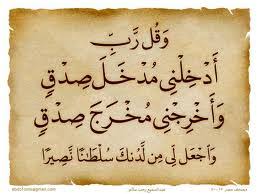 وَقُل رَّبِّ
أَدْخِلْنِى مُدْخَلَ صِدْقٍ
وَأَخْرِجْنِى مُخْرَجَ صِدْقٍ
وَٱجْعَل لِّى مِن لَّدُنكَ سُلْطَـٰنًا نَّصِيرًا